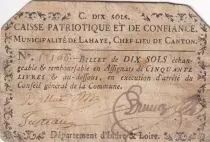 C. DIX SOLS.
CAISSE PATRIOTIQUE ET DE CONFIANCE.
MUNICIPALITÉ DE LAHAYE, CHEF-LIEU DE CANTON.
BILLET de DIX SOLS échan-
geable & remboursable en Assignats de CINQUANTE
LIVRES & au-dessous, en exécution d'arrêté du
Conseil général de la Commune.
Département d'Indre & Loire.